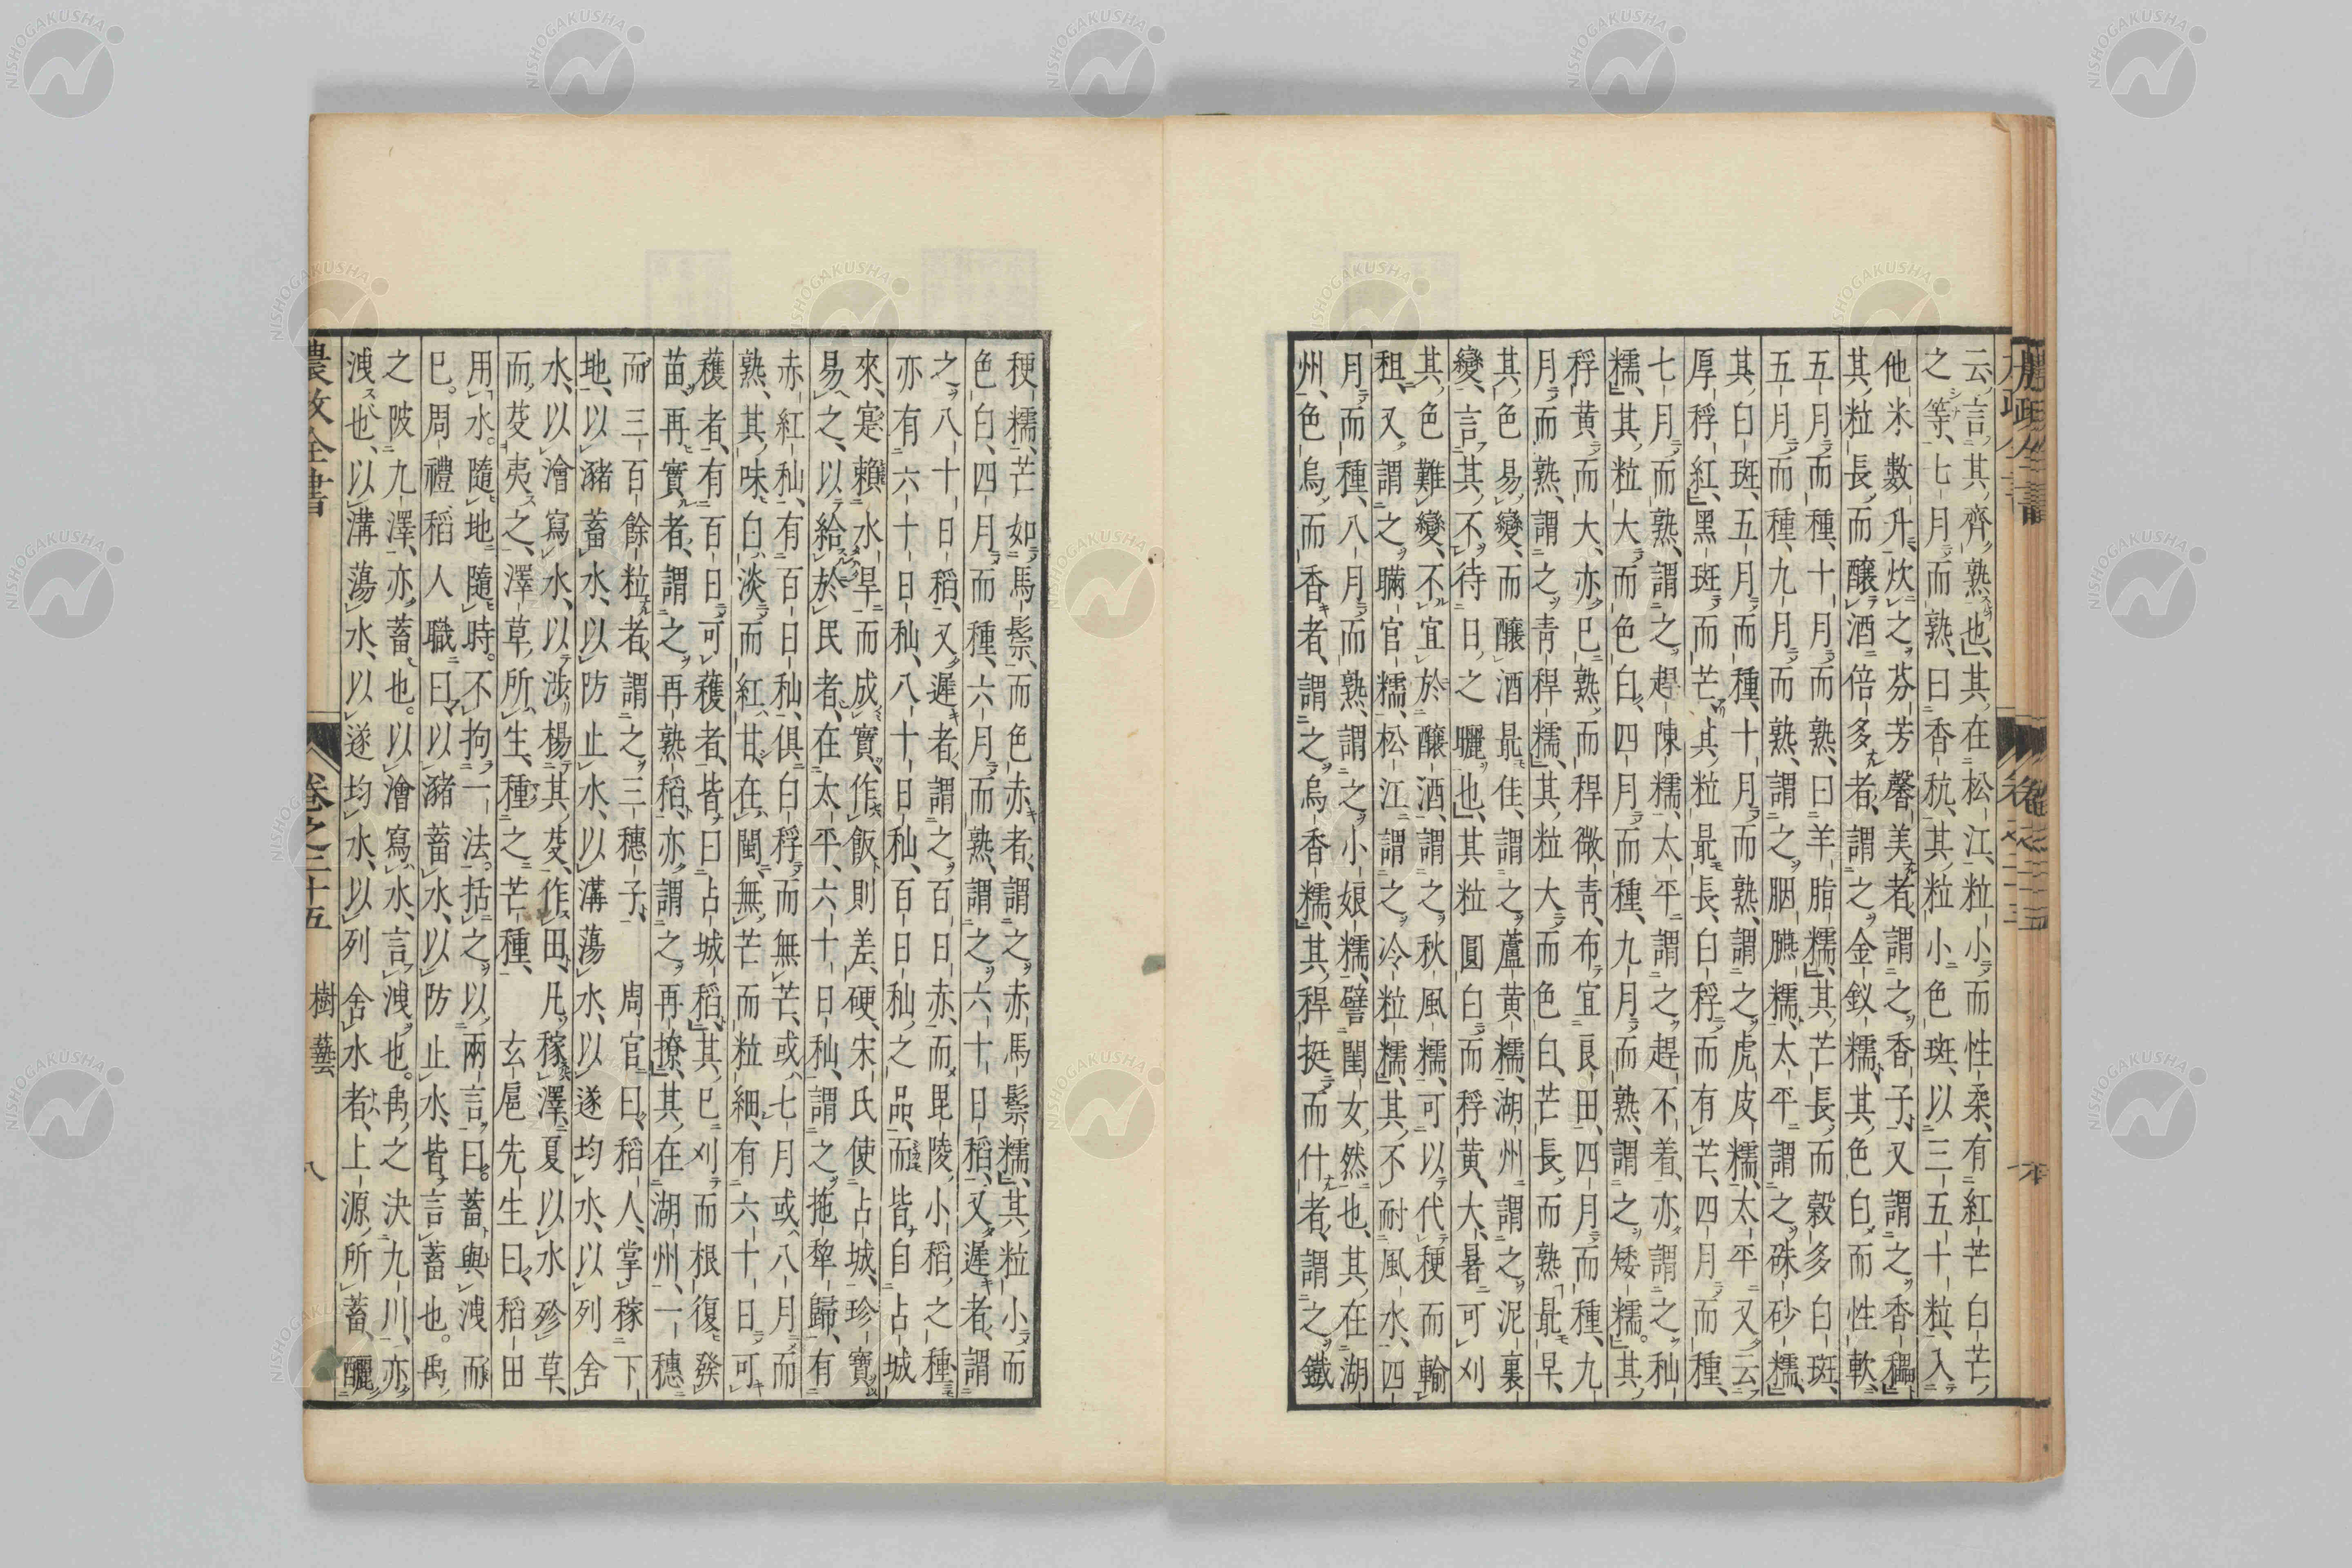 云言其齊熟也其在松江粒小而性柔有紅芒白芒
之等七月而熟曰香秔其粒小色斑以三五十粒入
他米數升炊之芬芳馨美者謂之香子又謂之香穤
其粒長而釀酒倍多者謂之金釵糯其色白而性軟
五月而種十月而熟曰羊脂糯其芒長而穀多白斑
五月而種九月而熟謂之胭臙糯太平謂之硃砂糯
其白斑五月而種十月而熟謂之虎皮糯太平又云
厚稃紅黑斑而芒其粒最長白稃而有芒四月而種
七月而熟謂之趕陳糯太平謂之趕不着亦謂之秈
糯其粒大而色白四月而種九月而熟謂之矮糯其
稃黄而大亦已熟而稈微青布宜良田四月而種九
月而熟謂之青稈糯其粒大而色白芒長而熟最早
其色易變而釀酒最佳謂之蘆黄糯湖州謂之泥裏
變言其不待日之曬也其粒圓白而稃黄大暑可刈
其色難變不宜於釀酒謂之秋風糯可以代稉而輸
租又謂之瞞官糯松江謂之冷粒糯其不耐風水四
月而種八月而熟謂之小娘糯譬閨女然也其在湖
州色烏而香者謂之烏香糯其稈挺而什者謂之鐵
稉糯芒如馬鬃而色赤者謂之赤馬鬃糯其粒小而
色白四月而種六月而熟謂之六十日稻又遲者謂
之八十日稻又遲者謂之百日赤而毘陵小稻之種
亦有六十日秈八十日秈百日秈之品而皆自占城
來寔賴水旱而成實作飯則差硬宋氏使占城珍寶
易之以給於民者在太平六十日秈謂之拖犂歸有
赤紅秈有百日秈俱白稃而無芒或七月或八月而
熟其味白淡而紅甘在閩無芒而粒細有六十日可
穫者有百日可穫者皆曰占城稻其已刈而根復發
苗再實者謂之再熟稻亦謂之再撩其在湖州一穗
而三百餘粒者謂之三穗子 周官曰稻人掌稼下
地以瀦蓄水以防止水以溝蕩水以遂均水以列舍
水以澮寫水以涉楊其芟作田凡稼澤夏以水殄草
而芟夷之澤草所生種之芒種 玄扈先生曰稻田
用水隨地隨時不拘一法括之以兩言曰蓄與洩而
已周禮稻人職曰以瀦蓄水以防止水皆言蓄也禹
之陂九澤亦蓄也以澮寫水言洩也禹之決九川亦
洩也以溝蕩水以遂均水以列舍水者上源所蓄釃
農政全書 卷之二十五 樹藝 八